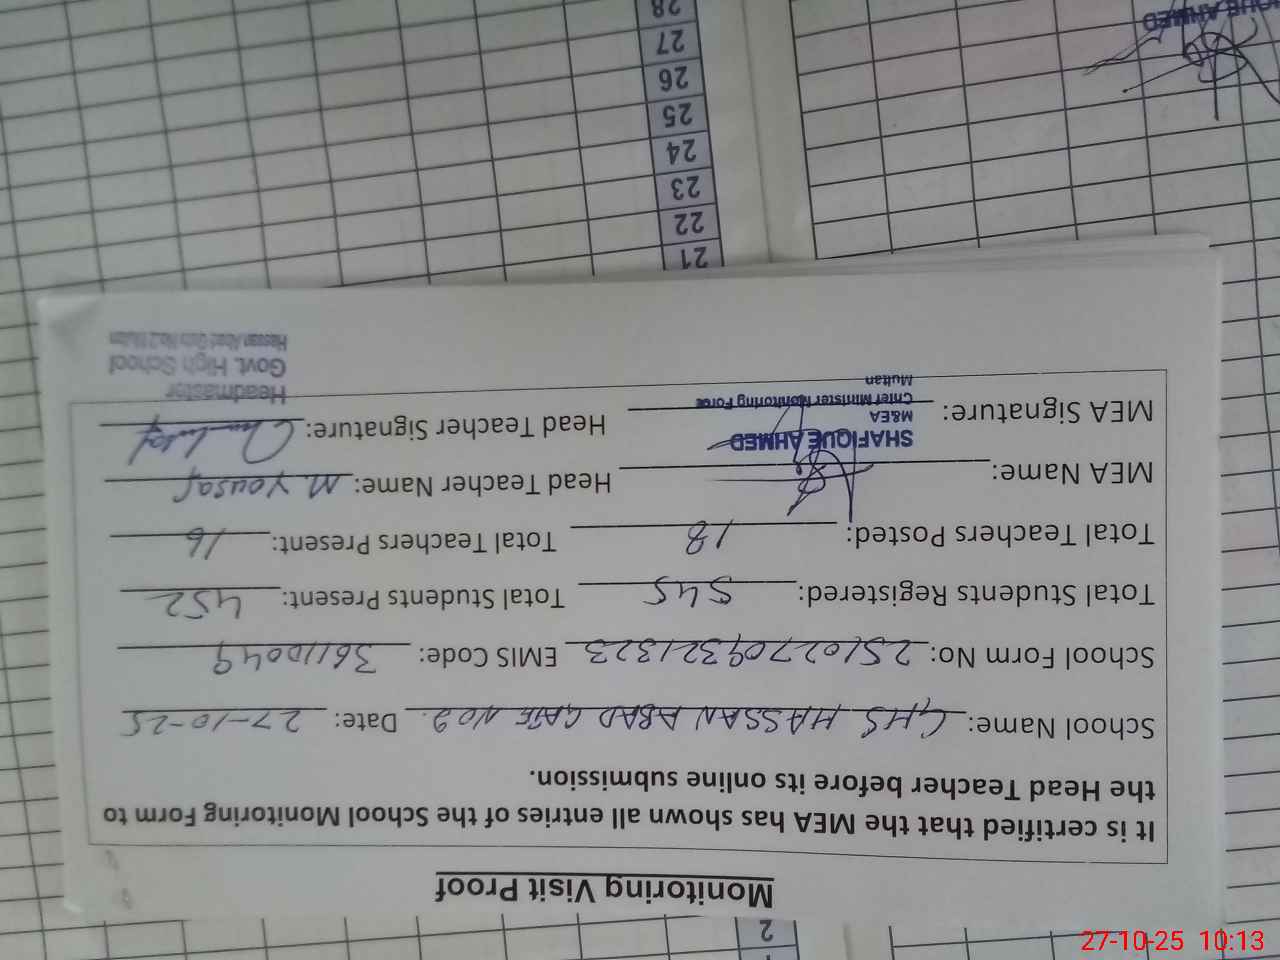 Monitoring Visit Proof
It is certified that the MEA has shown all entries of the School Monitoring Form to
the Head Teacher before its online submission.
School Name: GHS HASSAN ABAD GATE NO 2. Date: 27-10-25
School Form No: 25102709321323 EMIS Code: 36110049
Total Students Registered: 545 Total Students Present: 452
Total Teachers Posted: 18 Total Teachers Present: 16
MEA Name: Head Teacher Name: M. Yousaf
SHAFIQUE AHMED
M&EA
Chief Minister Monitoring Force
Multan
MEA Signature: Head Teacher Signature:
Headmaster
Govt. High School
Hassan Abad Gate No.2 Multan
2
21
22
23
24
25
26
27
28
AHMED
27-10-25 10:13